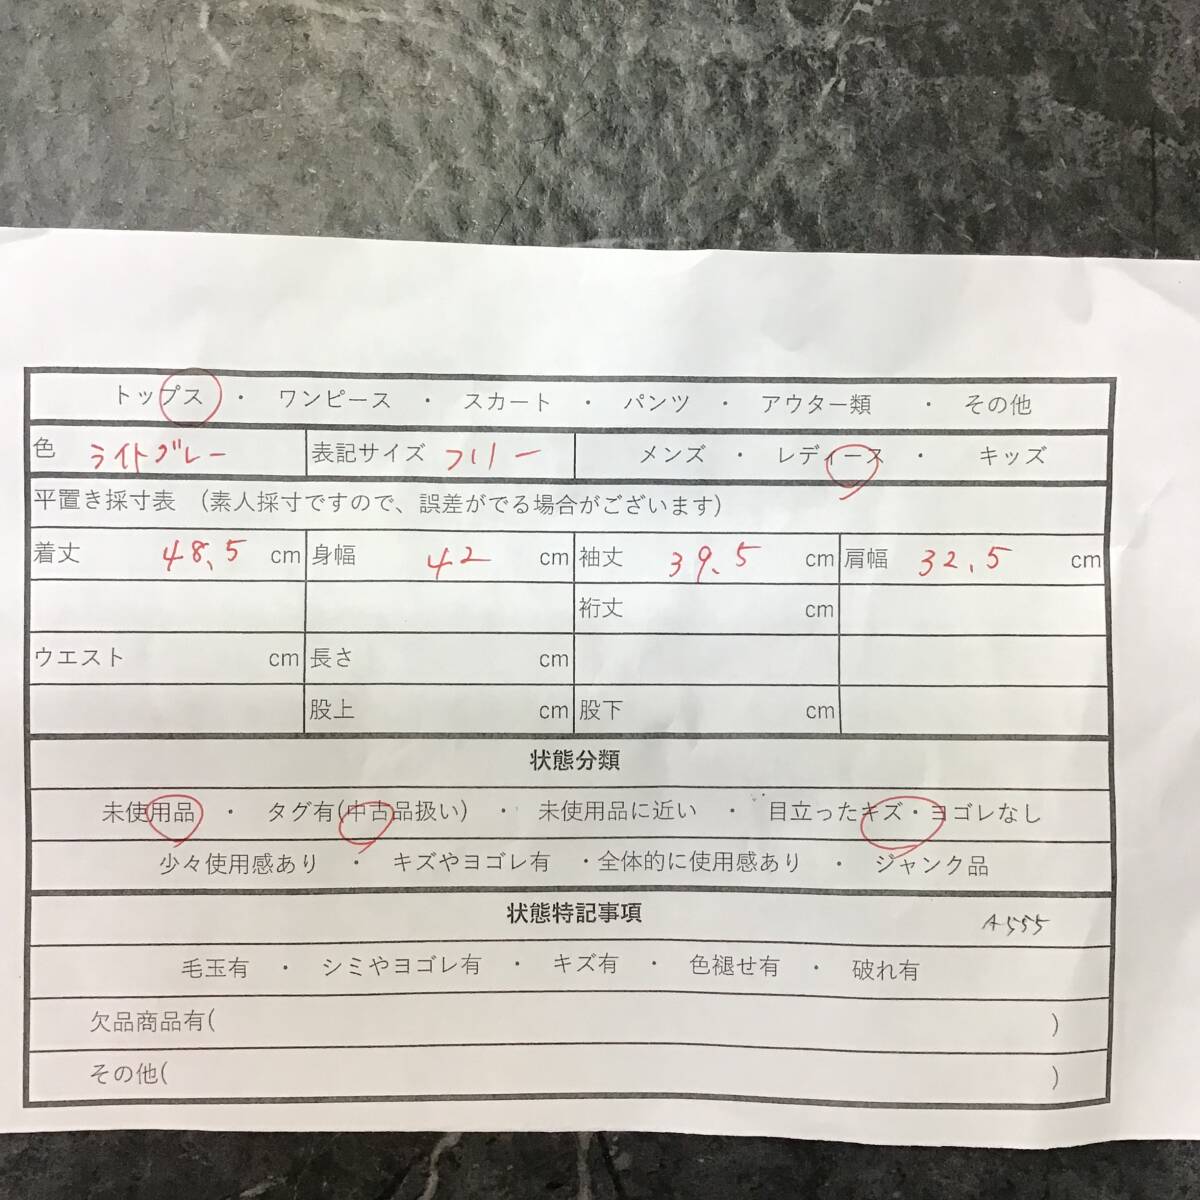 トップス ・ ワンピース ・ スカート ・ パンツ ・ アウター類 ・ その他
色 ライトグレー 表記サイズ フリー メンズ ・ レディース ・ キッズ
平置き採寸表 (素人採寸ですので、誤差がでる場合がございます)
着丈 48.5 cm 身幅 42 cm 袖丈 39.5 cm 肩幅 32.5 cm
裄丈 cm
ウエスト cm 長さ cm
股上 cm 股下 cm
状態分類
未使用品 ・ タグ有(中古品扱い) ・ 未使用品に近い ・ 目立ったキズ・ヨゴレなし
少々使用感あり ・ キズやヨゴレ有 ・全体的に使用感あり ・ ジャンク品
状態特記事項 A555
毛玉有 ・ シミやヨゴレ有 ・ キズ有 ・ 色褪せ有 ・ 破れ有
欠品商品有( )
その他( )